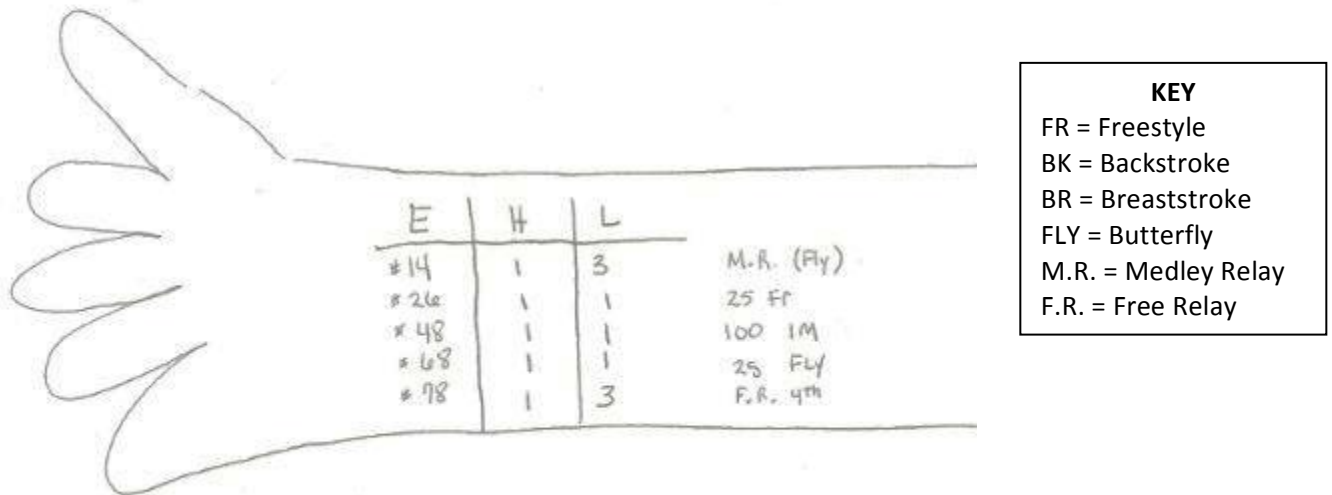 E H L
#14 1 3 M.R. (Fly)
#26 1 1 25 Fr
#48 1 1 100 IM
#68 1 1 25 FLY
#78 1 3 F.R. 4th
KEY
FR = Freestyle
BK = Backstroke
BR = Breaststroke
FLY = Butterfly
M.R. = Medley Relay
F.R. = Free Relay